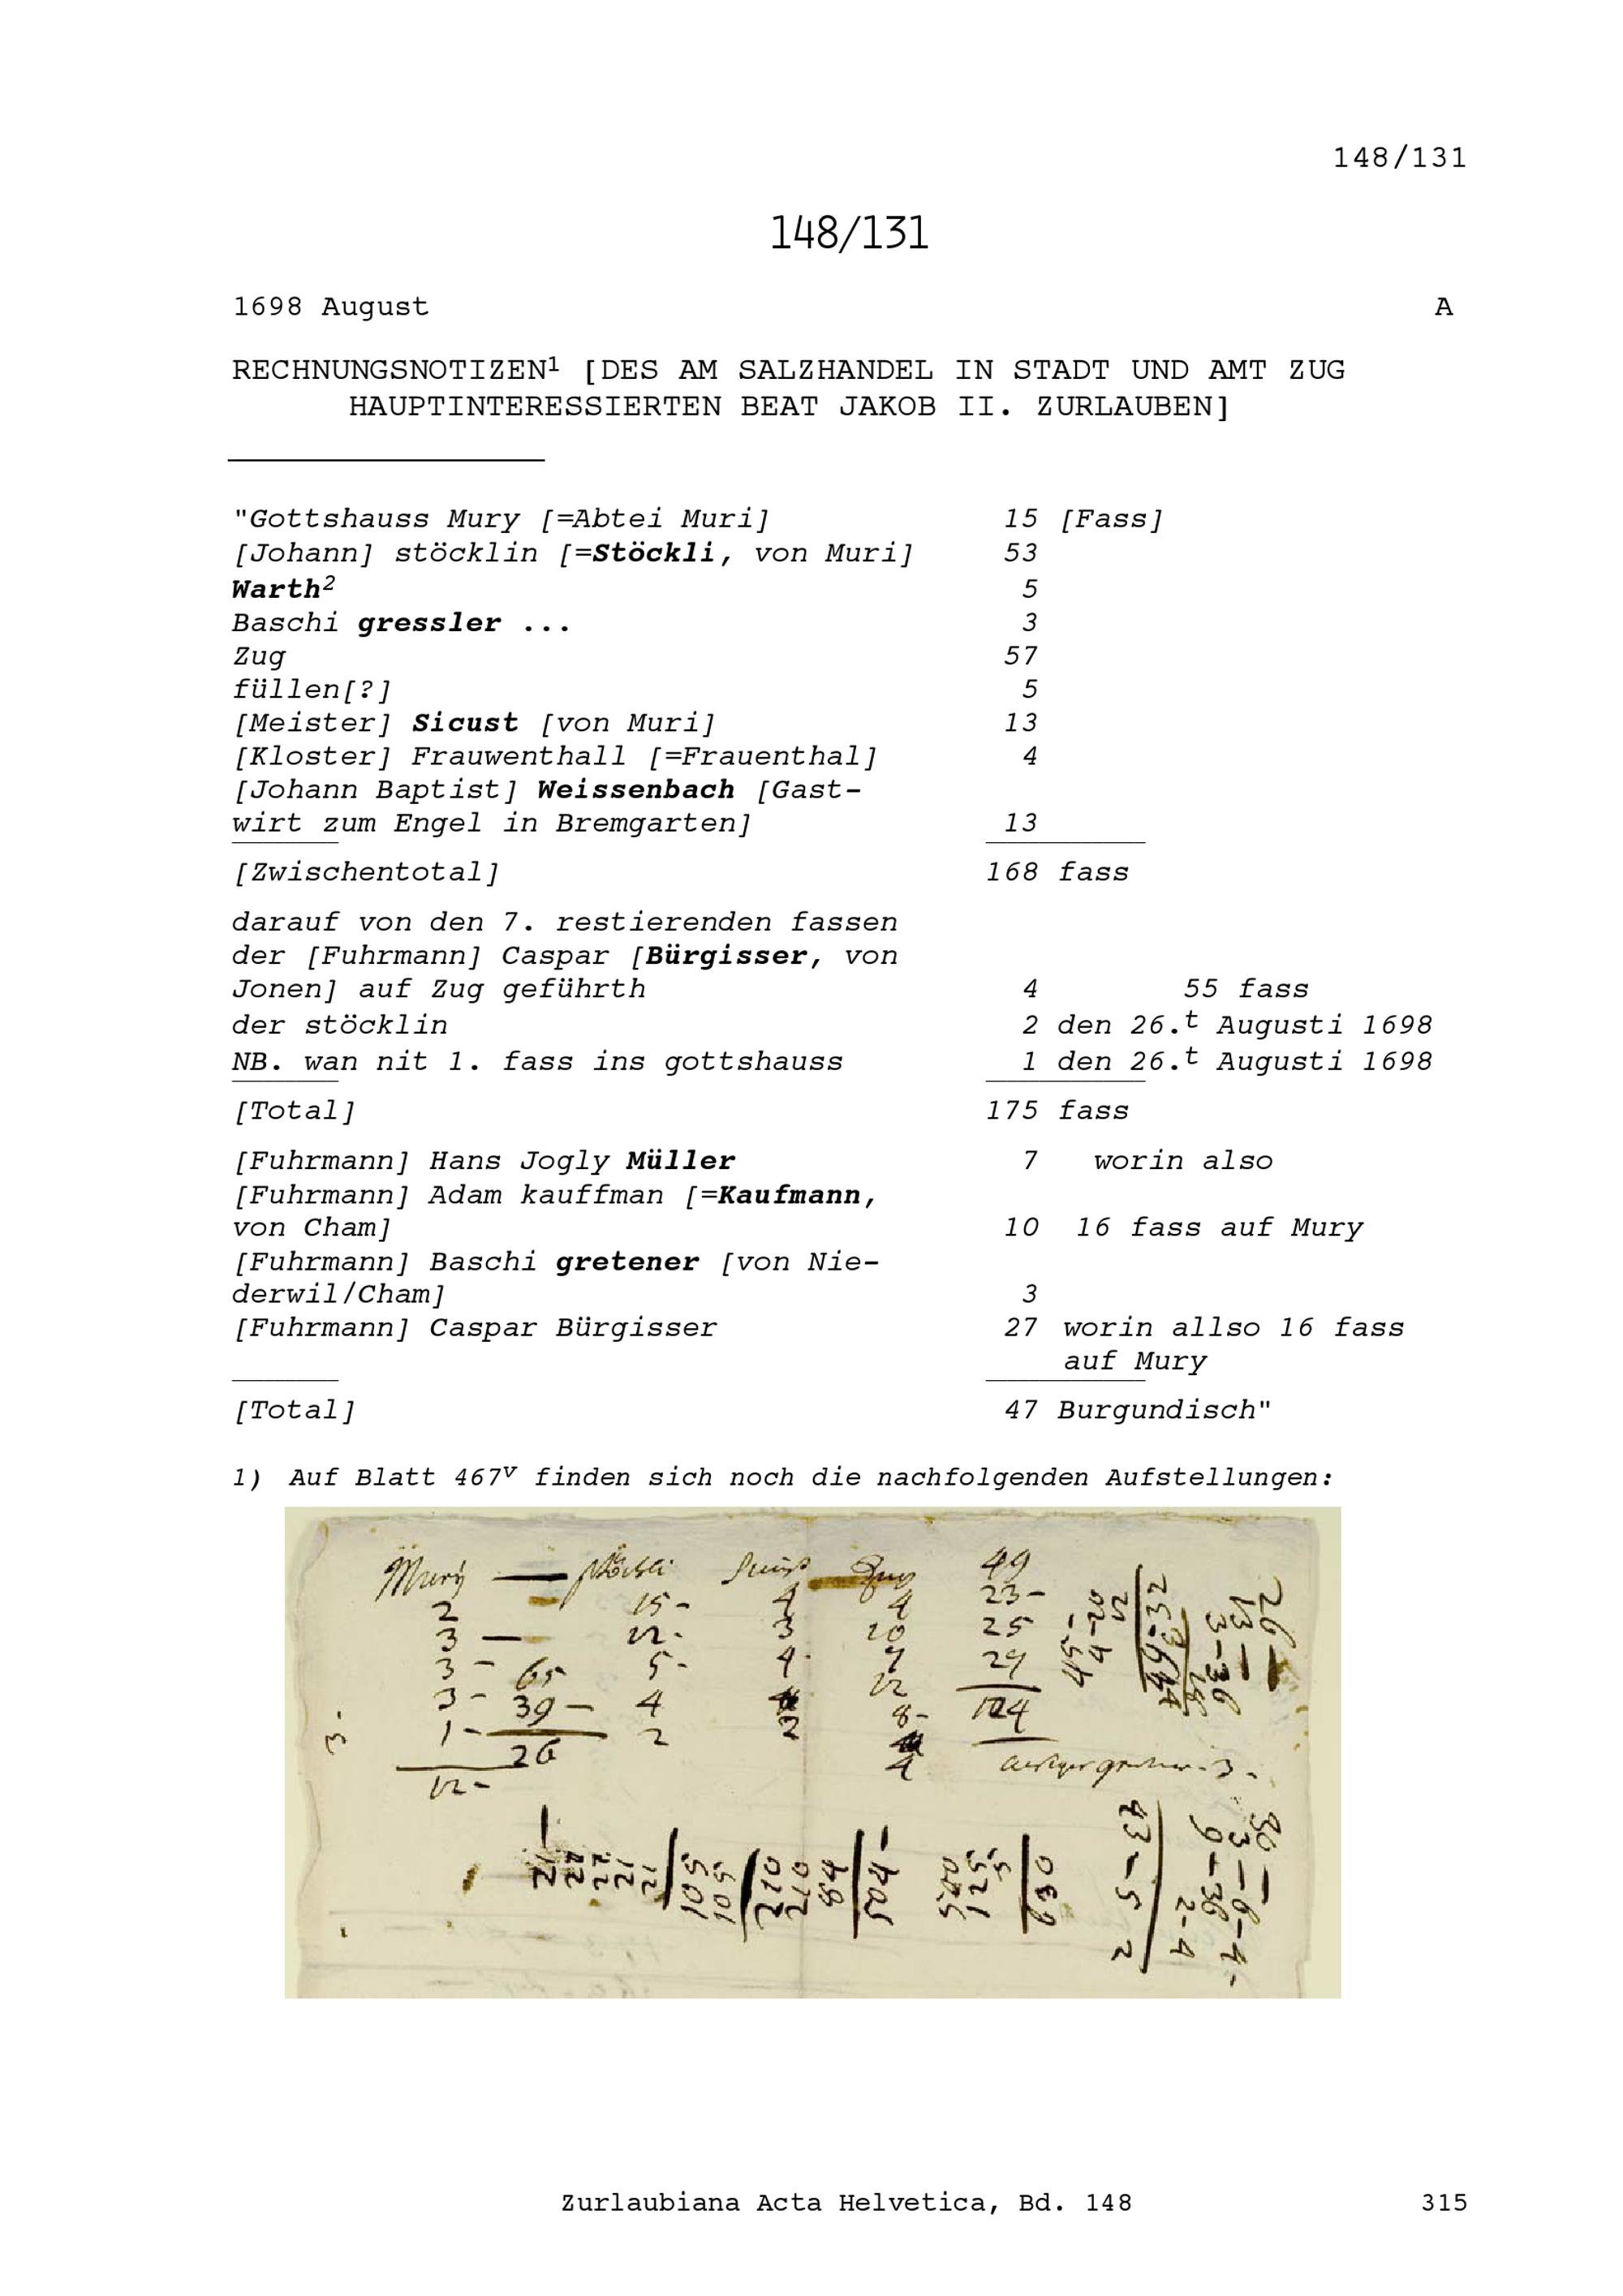 148/131
148/131
1698 August A
RECHNUNGSNOTIZEN1 [DES AM SALZHANDEL IN STADT UND AMT ZUG
HAUPTINTERESSIERTEN BEAT JAKOB II. ZURLAUBEN]
"Gottshauss Mury [=Abtei Muri] 15 [Fass]
[Johann] stöcklin [=Stöckli, von Muri] 53
Warth2 5
Baschi gressler ... 3
Zug 57
füllen[?] 5
[Meister] Sicust [von Muri] 13
[Kloster] Frauwenthall [=Frauenthal] 4
[Johann Baptist] Weissenbach [Gast-
wirt zum Engel in Bremgarten] 13
[Zwischentotal] 168 fass
darauf von den 7. restierenden fassen
der [Fuhrmann] Caspar [Bürgisser, von
Jonen] auf Zug geführth 4 55 fass
der stöcklin 2 den 26.t Augusti 1698
NB. wan nit 1. fass ins gottshauss 1 den 26.t Augusti 1698
[Total] 175 fass
[Fuhrmann] Hans Jogly Müller 7 worin also
[Fuhrmann] Adam kauffman [=Kaufmann,
von Cham] 10 16 fass auf Mury
[Fuhrmann] Baschi gretener [von Nie-
derwil/Cham] 3
[Fuhrmann] Caspar Bürgisser 27 worin allso 16 fass
auf Mury
[Total] 47 Burgundisch"
1) Auf Blatt 467v finden sich noch die nachfolgenden Aufstellungen:
Mury — Zug 49
2 15- 4 4 23-
3 — 12- 3 10 25
3 - 65 5- 4- 7
3 - 39 - 4 8-
1 - 26 2 4
12 -
3.
21
21
105
105
210
210
84
504 -
500
125
5
630
Zurlaubiana Acta Helvetica, Bd. 148 315